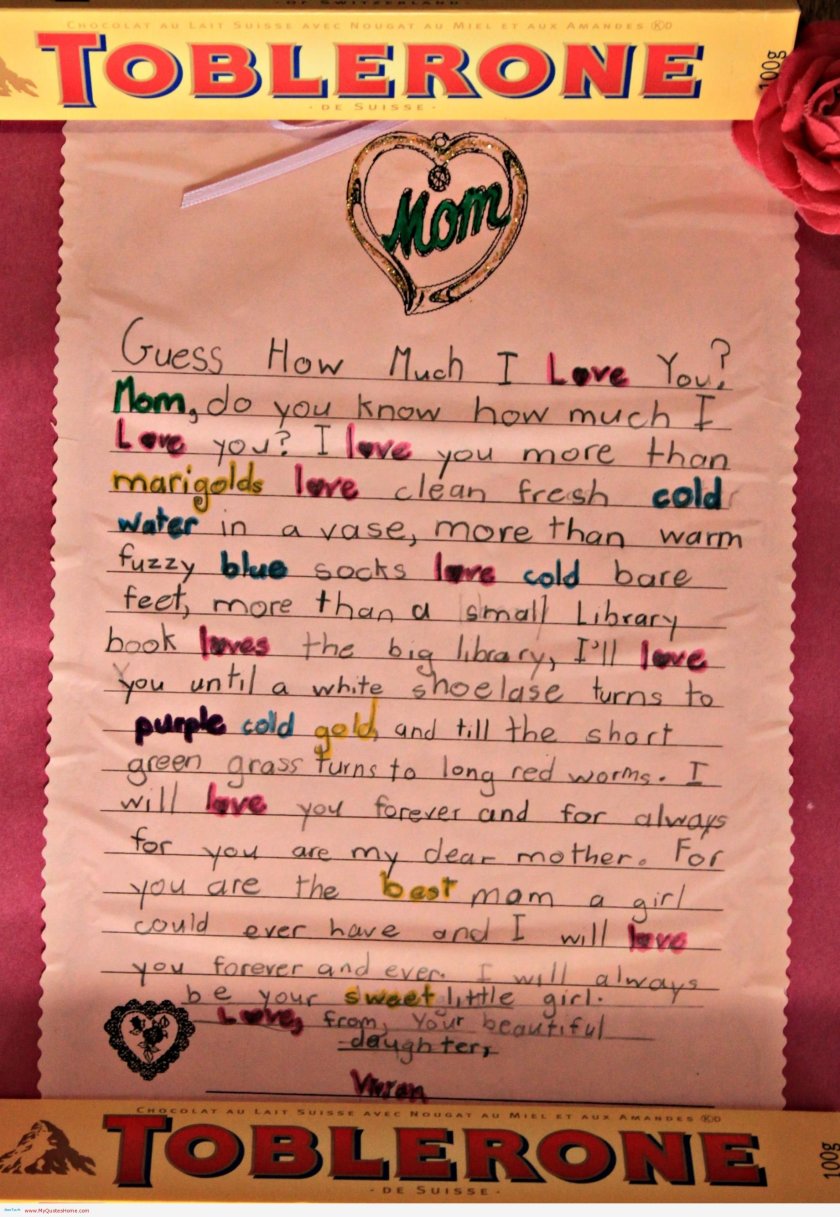 OF SWITZERLAND
CHOCOLAT AU LAIT SUISSE AVEC NOUGAT AU MIEL ET AUX AMANDES ⓀD
TOBLERONE
100g
· DE SUISSE ·
Mom
Guess How Much I Love You?
Mom, do you know how much I
Love you? I love you more than
marigolds love clean fresh cold
water in a vase, more than warm
fuzzy blue socks love cold bare
feet, more than a small Library
book loves the big library, I'll love
You until a white shoelase turns to
purple cold gold, and till the short
green grass turns to long red worms. I
will love you forever and for always
for you are my dear mother. For
you are the best mam a girl
could ever have and I will love
you forever and ever. I will always
be your sweet little girl.
Love, from, Your beautiful
daughter,
Vivian
CHOCOLAT AU LAIT SUISSE AVEC NOUGAT AU MIEL ET AUX AMANDES ⓀD
TOBLERONE
100g
· DE SUISSE ·
www.MyQuotesHome.com